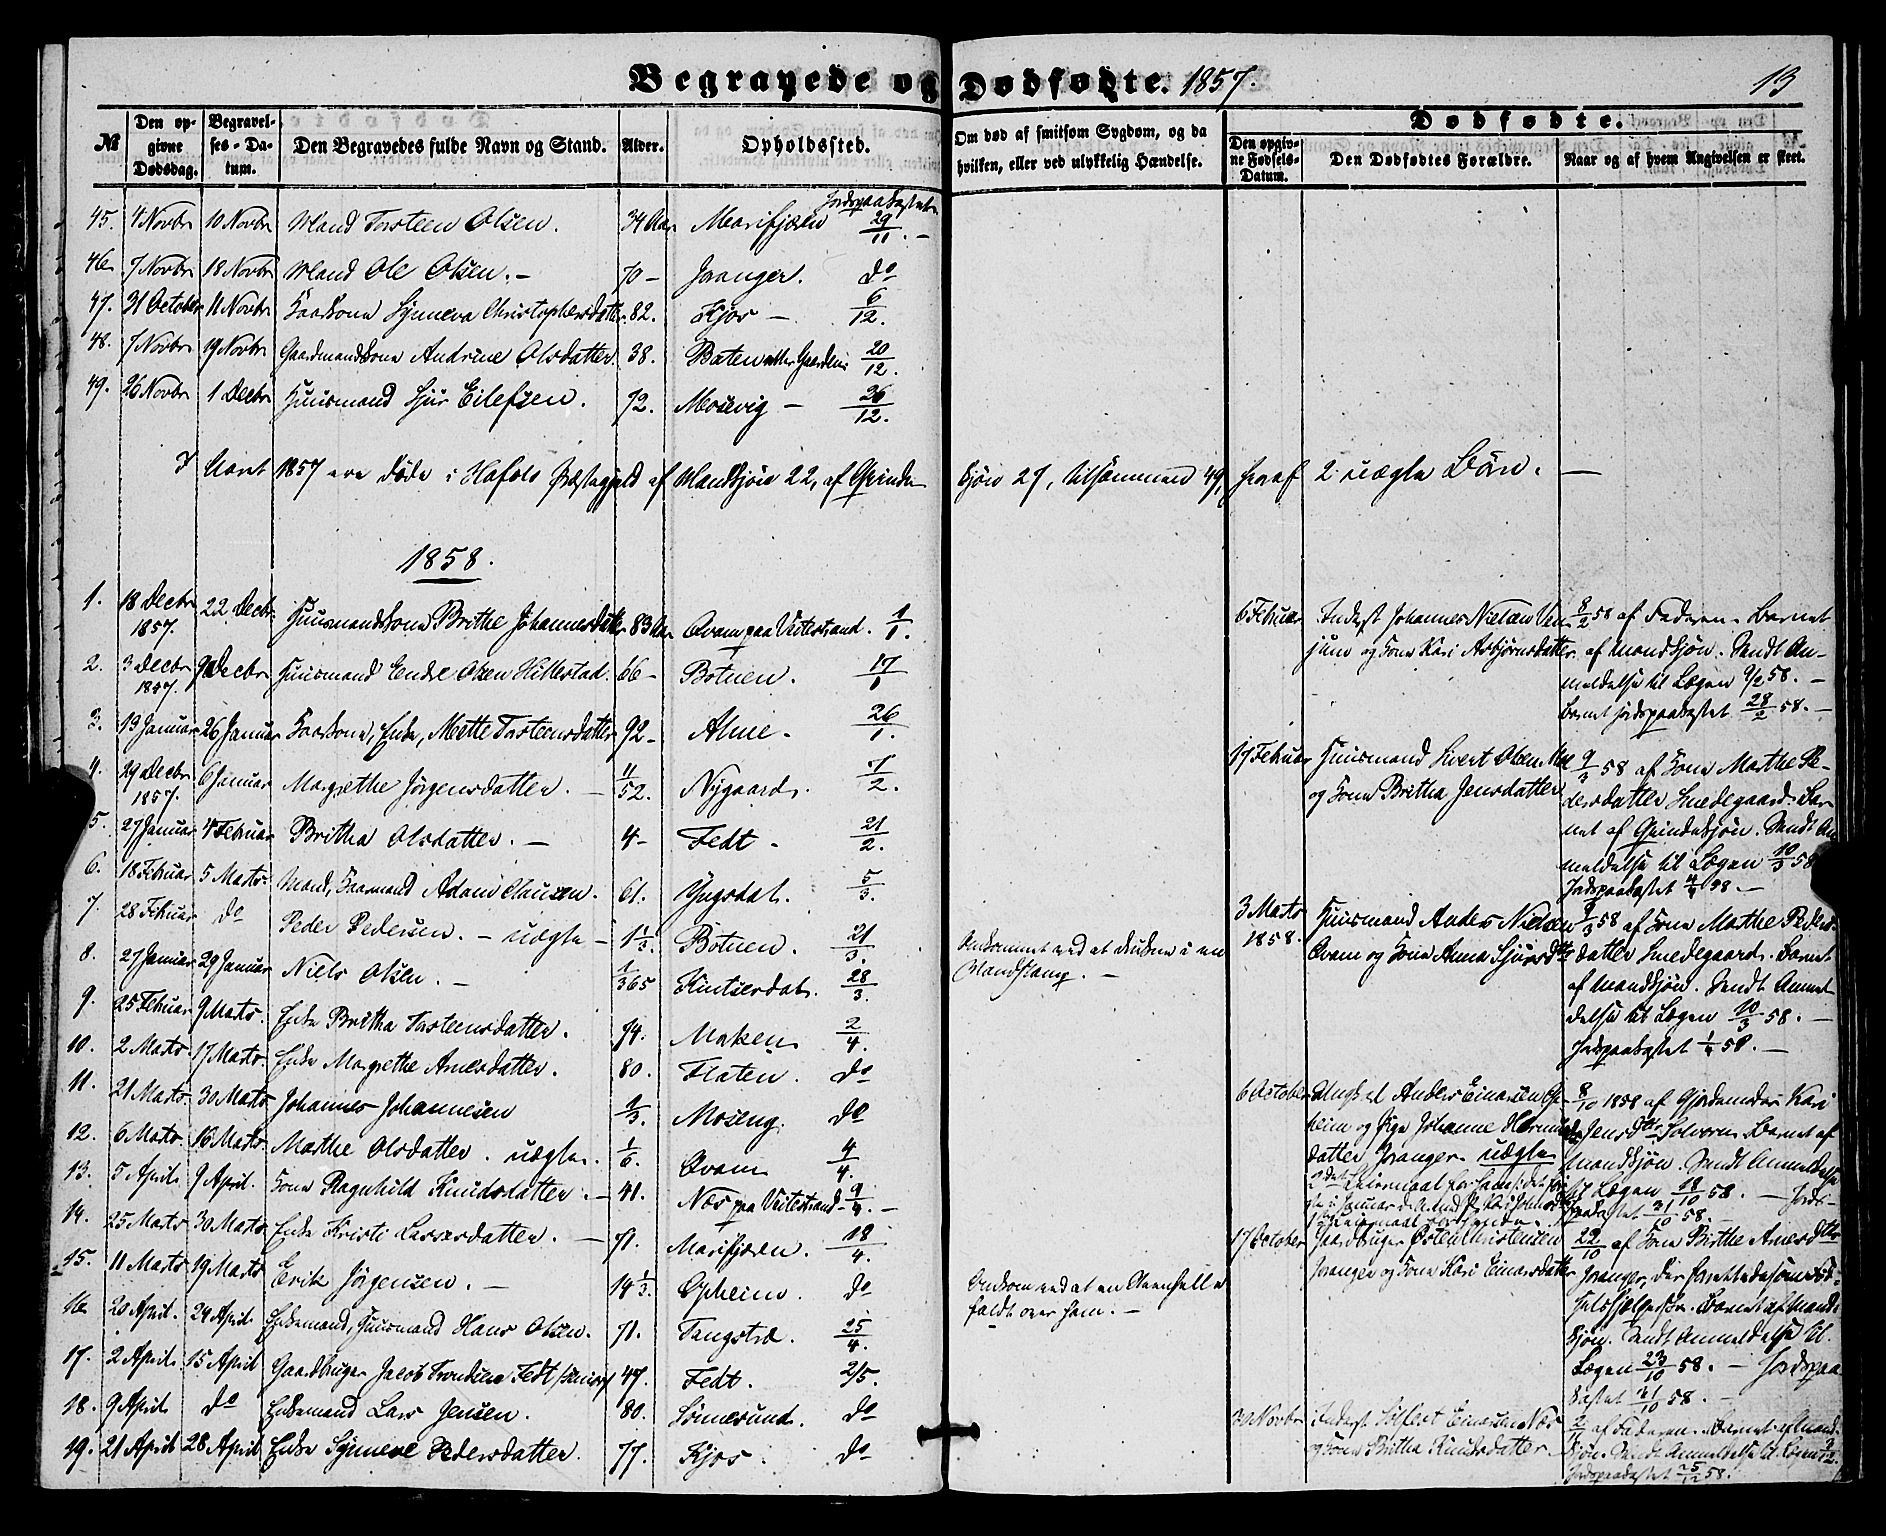 Begravede og Dødfødte. 1857. 13
№ Den opgivne Dødsdag. Begravelses-Datum. Den Begravedes fulde Navn og Stand. Alder. Opholdssted. Om død af smitsom Sygdom, og da hvilken, eller ved ulykkelig Hændelse. Dødfødte. Den opgivne Fødsels-Datum. Den Dødfødtes Forældre. Naar og af hvem Angivelsen er skeet.
Jordpaakastet
45. 4 Novbr 10 Novbr Mand Torsteen Olsen. 34 Aar Marifjæren 29/11. –
46 7 Novbr 18 Novbr Mand Ole Olsen. – 70 – Joranger. do
47. 31 October 11 Novbr Kaarkone Synneva Christophersdatter 82. Kjos – 6/12.
48. 7 Novbr 19 Novbr Gaardmandskone Andrine Olsdatter 38. 20/12.
49. 26 Novbr 1 Decbr Huusmand Sjur Eilefsen. 72. Mosevig – 26/12.
I Aaret 1857 ere døde i Hafslo Præstegjeld af Mandkjøn 22, af Qvindekjøn 27, tilsammen 49, heraf 2 uægte Børn. –
1858.
1. 18 Decbr 1857. 22 Decbr. Huusmandskone Brithe Johannesdatter 83 Aar Qvam paa Veitestrand. 1/1.
2. 3 Decbr 1857. 9 Decbr Huusmand Endre Olsen Hillestad. 66 – Botnen. 17/1
3. 19 Januar 26 Januar Kaarkone, Enke, Mette Torsteensdatter 92 – Alme. 26/1.
4. 29 Decbr 1857. 6 Januar Magrethe Jørgensdatter. – 11/52. Nygaard. 7/2.
5. 27 Januar 4 Februar Britha Olsdatter. – 4 – Fedt. 21/2.
6. 18 Februar 5 Marts. Mand, Kaarmand Adam Clausen. 61. Yngsdal. 5/3.
7. 28 Februar do Peder Pedersen. – uægte – 1 1/3. Botnen. 21/3.
8. 27 Januar 29 Januar Niels Olsen. – 1/365 Kintserdal. 28/3.
9. 25 Februar 9 Marts. Enke Britha Torsteensdatter. 74. 2/4.
10. 2 Marts 17 Marts. Enke Magrethe Arnesdatter. 80. Flaten. do
11. 21 Marts. 30 Marts Johannes Johannesen 1/3. Moseng. do
12. 6 Marts 16 Marts. Marthe Olsdatter. uægte. 1/6. Qvam 4/4.
13. 5 April 9 April. Kone Ragnhild Knudsdatter. – 41. Næs paa Veitestrand – 9/4. –
14. 25 Marts 30 Marts Enke Kristi Lassesdatter. – 71. Marifjæren. 18/4.
15. 11 Marts 19 Marts Erik Jørgensen. – 14 1/3. Opheim. do
16 20 April. 24 April Enkemand, Huusmand Hans Olsen. 71. Tangstræ. 25/4.
17. 2 April. 15 April Gaardbruger Jacob Trondsen Fedt 47. Fedt. 2/5.
18. 9 April do Enkemand Lars Jensen. 80. Sønnesund. do
19. 21 April 28 April Enke Synneve Pedersdatter. 77. Kjos. do
Omkommet ved at
Omkom ved at en
faldt over ham. –
6 Februar Inderst Johannes Nielsen
og Kone Kari Asbjørnsdatter.
8/2 58 af Faderen. Barnet
af Mandkjøn. Sendt Anmeldelse
til Lægen 9/2 58. –
Barnet jordpaakastet 28/2 58. –
17 Februar Huusmand Sivert Olsen
og Kone Britha Jensdatter
9/3 58 af Kone Marthe Pedersdatter
Smedegaard. Barnet
af Qvindekjøn. Sendt Anmeldelse
til Lægen 10/3 58
Jordpaakastet
3 Marts 1858. Huusmand Anders Nielsen
Qvam og Kone Anna Sjursdtr
9/3 58 af Kone Marthe Pedersdatter
Smedegaard. Barnet
af Mandkjøn. Sendt Anmeldelse
til Lægen 10/3 58. –
Jordpaakastet 1/4 58. –
6 October Ungkarl Anders Einarsen Opheim
og Pige Johanne
Joranger. uægte
8/10 1858 af Gjordemoder Kari
Jensdtr Solvorn. Barnet af
Mandkjøn. Sendt Anmeldelse
til Lægen 18/10 58. – Jordpaakastet 31/10 58.
17 October Gaardbruger Østen Christensen
Joranger og Kone Kari Einarsdatter
22/10 af Kone Birthe Arnesdtr
Joranger, der
Barnet af Mandkjøn.
Sendt Anmeldelse til
Lægen 23/10 58. – Jordpaakastet 31/10 58. –
30 Novbr Inderst Einarsen Næs
og Kone Britha Knudsdatter
af Faderen. Barnet af Mandkjøn.
Sendt Anmeldelse til Lægen
Jordpaakastet 25/12 58.